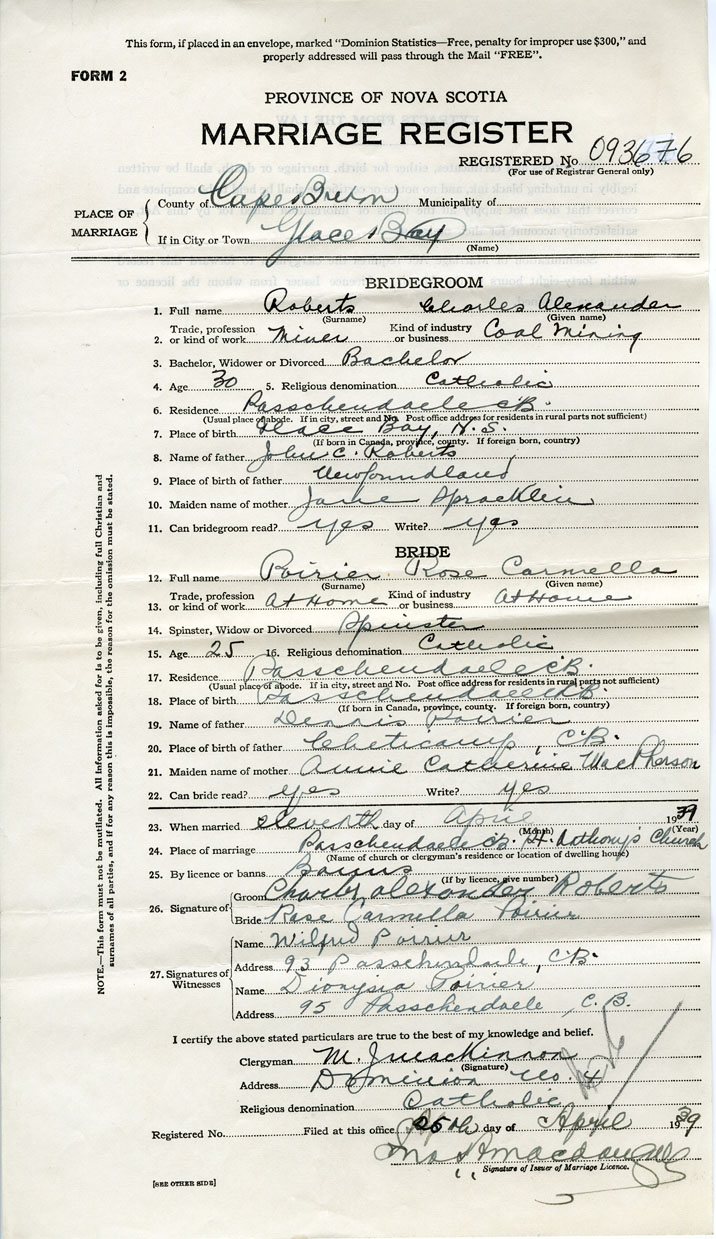 This form, if placed in an envelope, marked "Dominion Statistics—Free, penalty for improper use $300," and
properly addressed will pass through the Mail "FREE".
FORM 2
PROVINCE OF NOVA SCOTIA
MARRIAGE REGISTER
REGISTERED No 093676
(For use of Registrar General only)
PLACE OF MARRIAGE
County of Cape Breton Municipality of
If in City or Town Glace Bay
(Name)
BRIDEGROOM
1. Full name Roberts Charles Alexander
(Surname) (Given name)
2. Trade, profession or kind of work Miner Kind of industry or business Coal Mining
3. Bachelor, Widower or Divorced Bachelor
4. Age 30 5. Religious denomination Catholic
6. Residence Passchendaele C.B.
(Usual place of abode. If in city, street and No. Post office address for residents in rural parts not sufficient)
7. Place of birth Glace Bay, N.S.
(If born in Canada, province, county. If foreign born, country)
8. Name of father John C. Roberts
9. Place of birth of father Newfoundland
10. Maiden name of mother Jane Spracklin
11. Can bridegroom read? yes Write? yes
BRIDE
12. Full name Poirier Rose Carmella
(Surname) (Given name)
13. Trade, profession or kind of work At Home Kind of industry or business At Home
14. Spinster, Widow or Divorced Spinster
15. Age 25 16. Religious denomination Catholic
17. Residence Passchendaele C.B.
(Usual place of abode. If in city, street and No. Post office address for residents in rural parts not sufficient)
18. Place of birth Passchendaele C.B.
(If born in Canada, province, county. If foreign born, country)
19. Name of father Dennis Poirier
20. Place of birth of father Cheticamp, C.B.
21. Maiden name of mother Annie Catherine MacPherson
22. Can bride read? yes Write? yes
23. When married eleventh day of April 1939
(Month) (Year)
24. Place of marriage Passchendaele C.B. St. Anthony's Church
(Name of church or clergyman's residence or location of dwelling house)
25. By licence or banns Banns
(If by licence, give number)
26. Signature of
Groom Charles Alexander Roberts
Bride Rose Carmella Poirier
27. Signatures of Witnesses
Name Wilfred Poirier
Address 93 Passchendaele, C.B.
Name Dionysia Poirier
Address 95 Passchendaele, C.B.
I certify the above stated particulars are true to the best of my knowledge and belief.
Clergyman M. J. MacKinnon
(Signature)
Address Dominion No. 4
Religious denomination Catholic
Registered No. Filed at this office 25th day of April 1939
Macdougall
Signature of Issuer of Marriage Licence.
[SEE OTHER SIDE]
NOTE.—This form must not be mutilated. All Information asked for is to be given, including full Christian and
surnames of all parties, and if for any reason this is impossible, the reason for the omission must be stated.